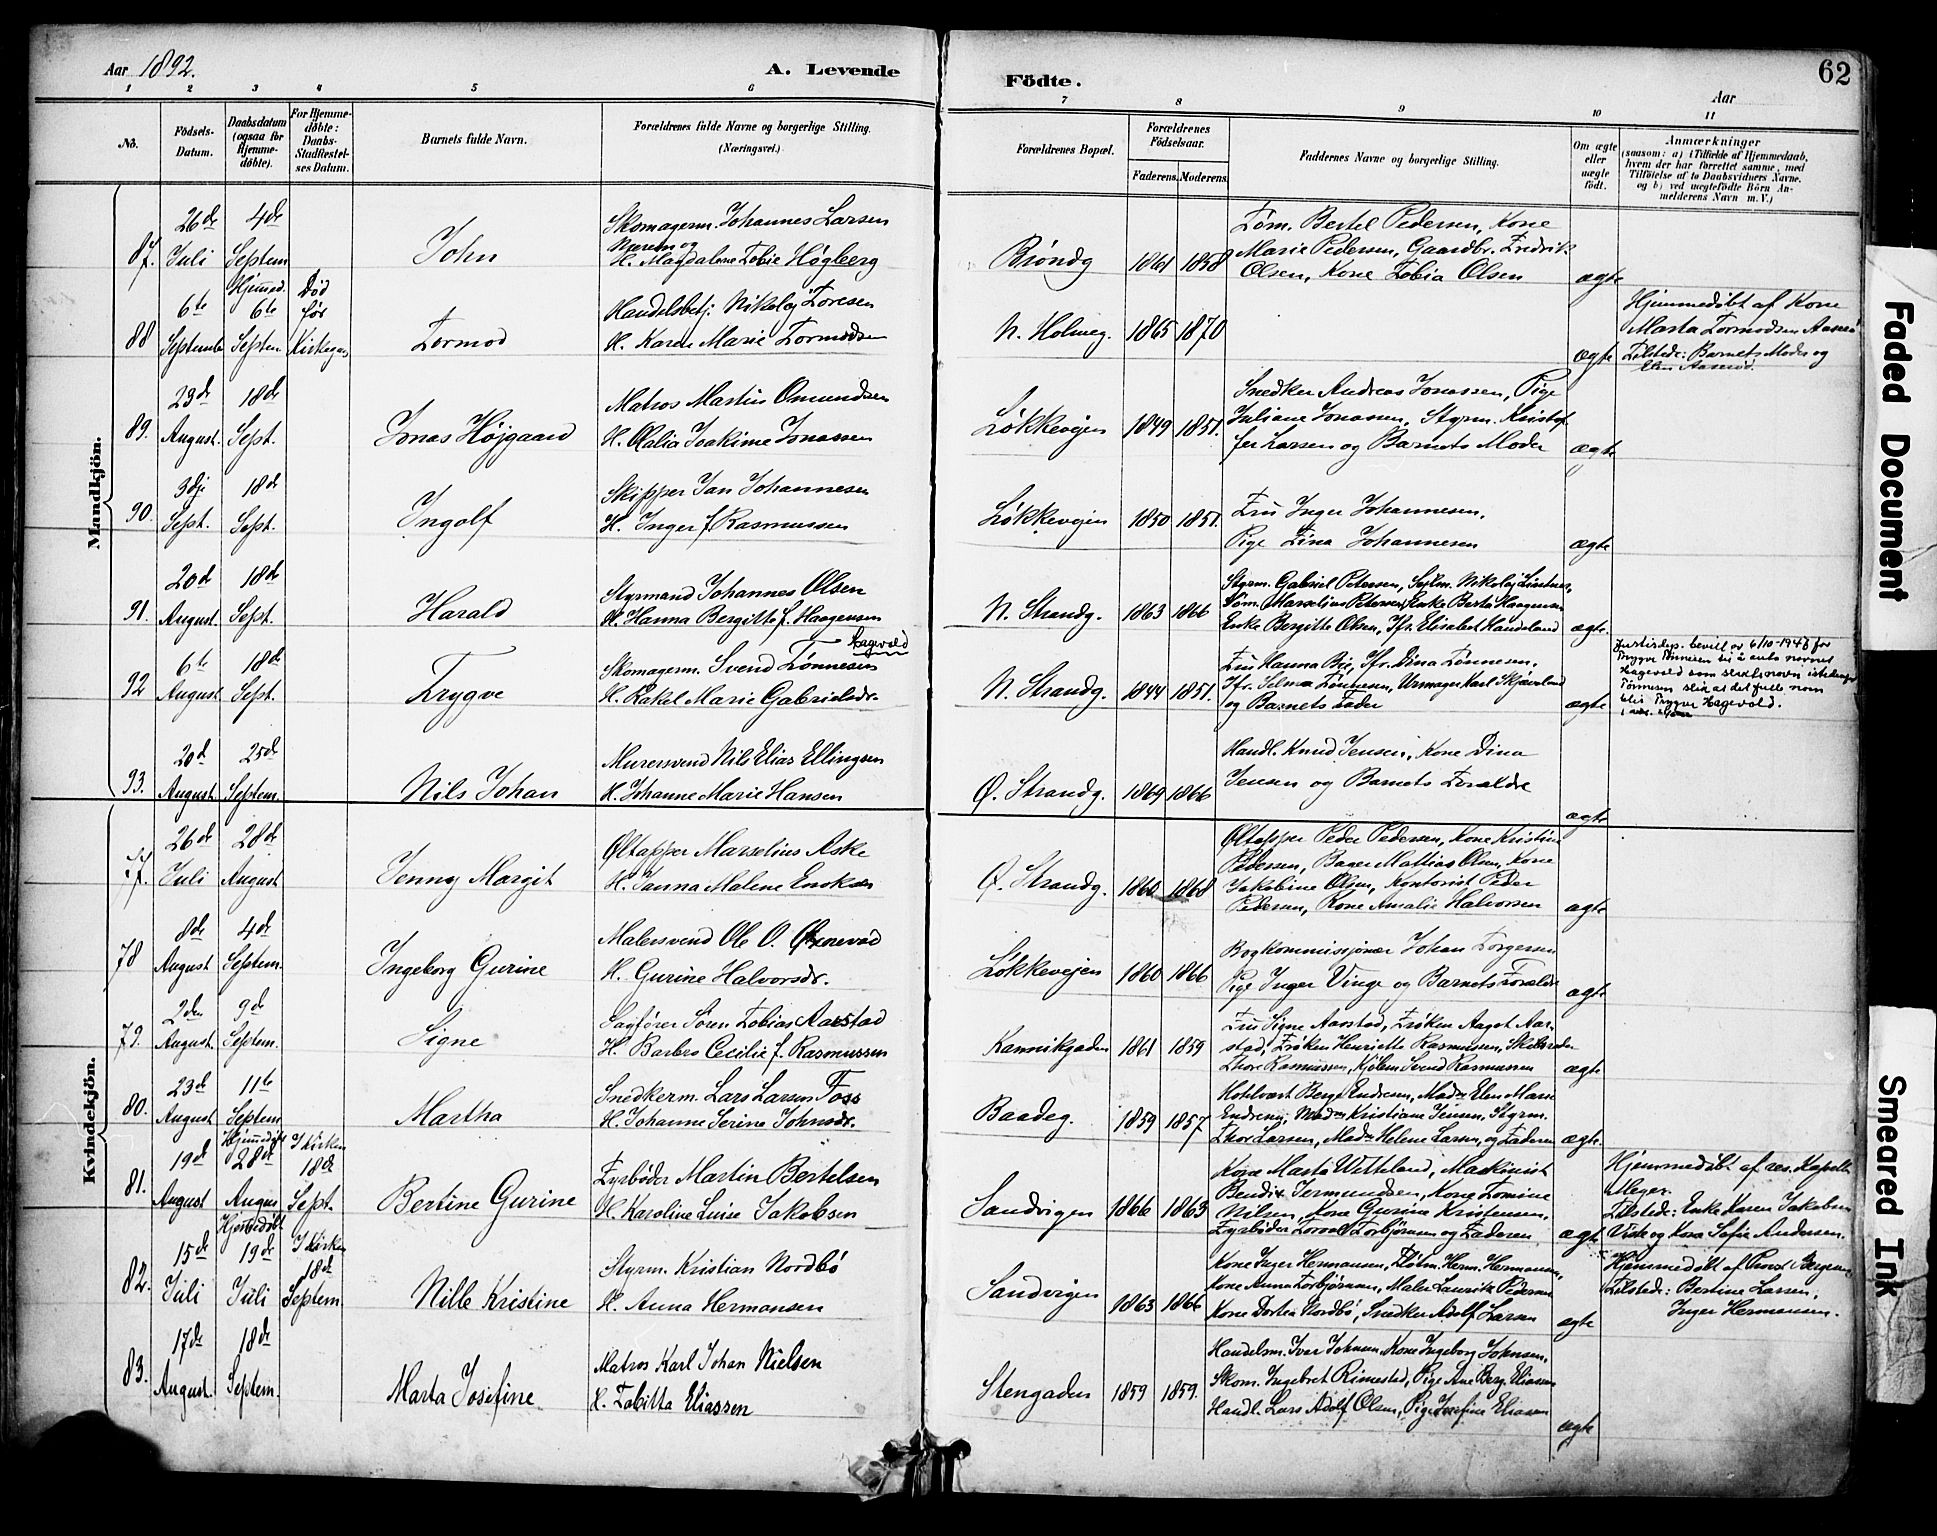 Aar 1892.
A. Levende
Födte.
62
Aar
1 2 3 4 5 6 7 8 9 10 11
No.
Födsels-
Datum.
Daabsdatum
(ogsaa for
Hjemme-
døbte).
For Hjemme-
døbte:
Daabs-
Stadfæstel-
ses Datum.
Barnets fulde Navn.
Forældrenes fulde Navne og borgerlige Stilling.
(Næringsvei.)
Forældrenes Bopæl.
Forældrenes
Födselsaar.
Faderens. Moderens.
Faddernes Navne og borgerlige Stilling.
Om ægte
eller
uægte
født.
Anmærkninger
(saasom: a) i Tilfælde af Hjemmedaab,
hvem der har forrettet samme, med
Tilföielse af to Daabsvidners Navne.
og b) ved uægtefødte Börn An-
melderens Navn m. V.)
Mandkjön.
87.
26de
Juli
4de
Septem
John
Skomagerm. Johannes Larsen
Nærem og
H. Magdalene Tobie Høgberg
Bröndg
1861 1858
Tøm. Bertel Pedersen, Kone
Marie Pedersen, Gaardbr. Fredrik
Olsen, Kone Tobia Olsen
ægte
88
6te
September
Hjemmed.
6te
Septem.
Død
før
Kirkegan
Tormod
Handelsbetj. Nikolaj Toresen
H. Karen Marie Tormodsen
N. Holmeg.
1865 1870
ægte
Hjemmedöbt af Kone
Marta Tormodsen Aasen
Tilstede: Barnets Moder og
89.
23de
August.
18de
Sept.
Jonas Højgaard
Matros Martin Omundsen
H. Olalia Joakime Jonassen
Løkkevejen
1849 1851.
Snedker Andreas Jonassen, Pige
Juliane Jonassen, Styrm. Kristof
fer Larsen og Barnets Moder
ægte
90.
3dje
Sept.
18de
Sept.
Ingolf
Skipper Jan Johannesen
H. Inger f. Rasmussen
Løkkevejen
1850 1851.
Fru Inger Johannesen,
Pige Lina Johannesen
ægte
91.
20de
August.
18de
Sept.
Harald
Styrmand Johannes Olsen
H. Hanna Bergitte f. Haagensen
N. Strandg.
1863 1866
Styrm. Gabriel Petersen, Sejlm. Nikolaj
Tøm. Marselius Petersen, Enke Berta Haagensen
Enke Bergitte Olsen, Jfr. Elisabet Handeland
ægte.
92
6te
August.
18de
Sept.
Trygve
Hagevold
Skomagerm. Svend Tønnesen
H. Rakel Marie Gabrielsdr.
N. Strandg.
1844 1851.
Fru Hanna Bie, Jfr. Dina Tönnesen,
Jfr. Selma Tönnesen, Urmager Karl Skjæveland
og Barnets Fader
ægte
Justisdep. bevill. av 6/10-1948 for
Trygve Tönnesen til å anta navnet
Hagevold som slektsnavn istedenfor
Tönnesen slik at det fulle navn
blir Trygve Hagevold.
93.
20de
August.
25de
Septem.
Nils Johan
Murersvend Nils Elias Ellingsen
H. Johanne Marie Hansen
Ø. Strandg.
1869 1866
Handl. Knud Jensen, Kone Dina
Jensen og Barnets Foraldre
ægte
Kvindekjön.
77.
26de
Juli
28de
August
Jenny Margit
Øltapper Marselius Aske
H. Janna Malene Enoksen
Ø. Strandg.
1860 1868
Øltapper Peder Pedersen, Kone Kristine
Pedersen, Bager Mathias Olsen, Kone
Jakobine Olsen, Kontorist Peder
Pedersen, Kone Amalie Halvorsen
ægte
78
8de
August
4de
Septem.
Ingeborg Gurine
Malersvend Ole O.
H. Gurine Halvorsdr.
Løkkevejen
1860 1866
Bogkommissjonær Johan Torgersen
Pige Inger Vinge og Barnets Foraldre
ægte
79.
2den
August.
9de
Septem.
Signe
Sagfører Sören Tobias Aarstad
H. Barbro Cecilie f. Rasmussen
Kannikgaden
1861 1859
Fru Signe Aarstad, Frøken Aagot Aar-
stad, Frøken Henriette Rasmussen, Skibsreder
Thore Rasmussen, Kjöbm. Svend Rasmussen
ægte
80.
23de
August
11te
Septem
Martha
Snedkerm. Lars Larsen Foss
H. Johanne Serine Johnsdr.
Baadeg.
1859 1857
Hotelvært Berge Endresen, Mad. Elen Marie
Endresen, Mad. Kristiane Jensen, Styrm.
Thor Larsen, Mad. Helene Larsen, og Faderen
ægte.
81.
19de
August
Hjemmedöbt
28de
Augus
I Kirken
18de
Sept.
Bertine Gurine
Fyrbøder Martin Bertelsen
H. Karoline Luise Jakobsen
Sandvigen
1866 1863
Kone Marta Vetteland, Maskinist
Bendix Jermundsen, Kone Tomine
Nilsen, Kone Gurine Kristensen,
Fyrbøder Torval Torbjörnsen og Faderen
ægte
Hjemmedöbt af res. Kapellan
Meyer.
Tilstede: Enke Karen Jakobsen
Viste og Kona Sofie Andersen.
82.
15de
Juli
Hjemmedöbt
19de
Juli
I Kirken
18de
Septem.
Nille Kristine
Styrm. Kristian Nordbö
H. Anna Hermansen
Sandvigen
1863 1866
Kone Inger Hermansen, Herm. Hermansen,
Kone Anna Torbjörnsen, Maler Lauritz Pedersen
Kone Dortea Nordbö, Snedker Adolf Larsen
ægte
Hjemmedöbt af Provst
Tilstede: Bertine Larsen,
Inger Hermansen.
83.
17de
August.
18de
Septem.
Marta Josefine
Matros Karl Johan Nielsen
H. Tabitta Eliassen
Stengaden
1859 1859.
Handelsm. Ivar Johnsen, Kone Ingeborg Johnsen,
Skom. Ingebret Rimestad, Pige Ane Berg. Eliassen
Handl. Lars Adolf Olsen, Pige Josefine Eliassen
ægte
Faded Document
Smeared Ink